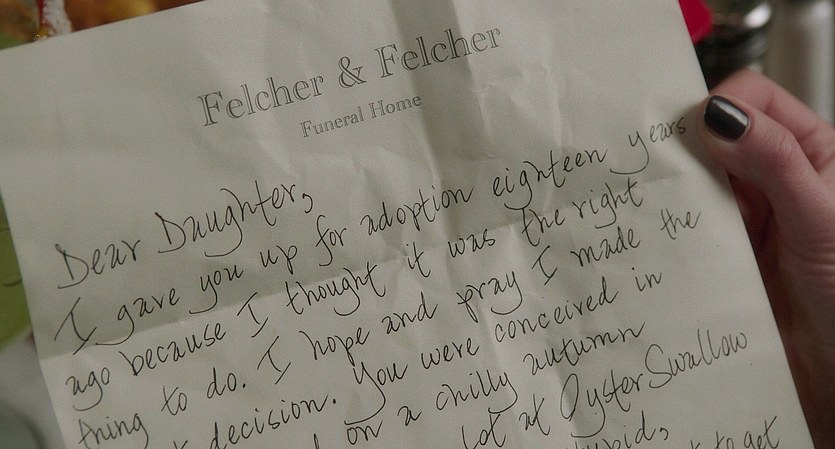 Felcher & Felcher
Funeral Home
Dear Daughter,
I gave you up for adoption eighteen years
ago because I thought it was the right
thing to do. I hope and pray I made the
decision. You were conceived in
on a chilly autumn
lot at OysterSwallow
to get